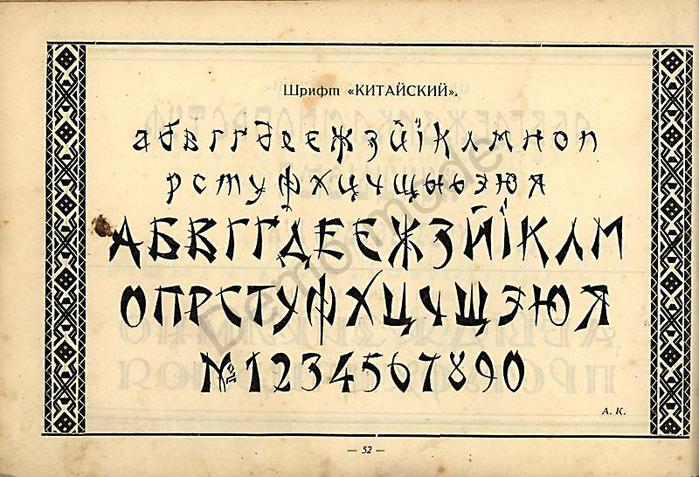 Шрифт «КИТАЙСКИЙ».
абвгґдеєжзйїклмноп
рстуфхцчщыьэюя
АБВГҐДЕЄЖЗЙЇКЛМ
ОПРСТУФХЦЧШЭЮЯ
№1234567890
А. К.
— 52 —